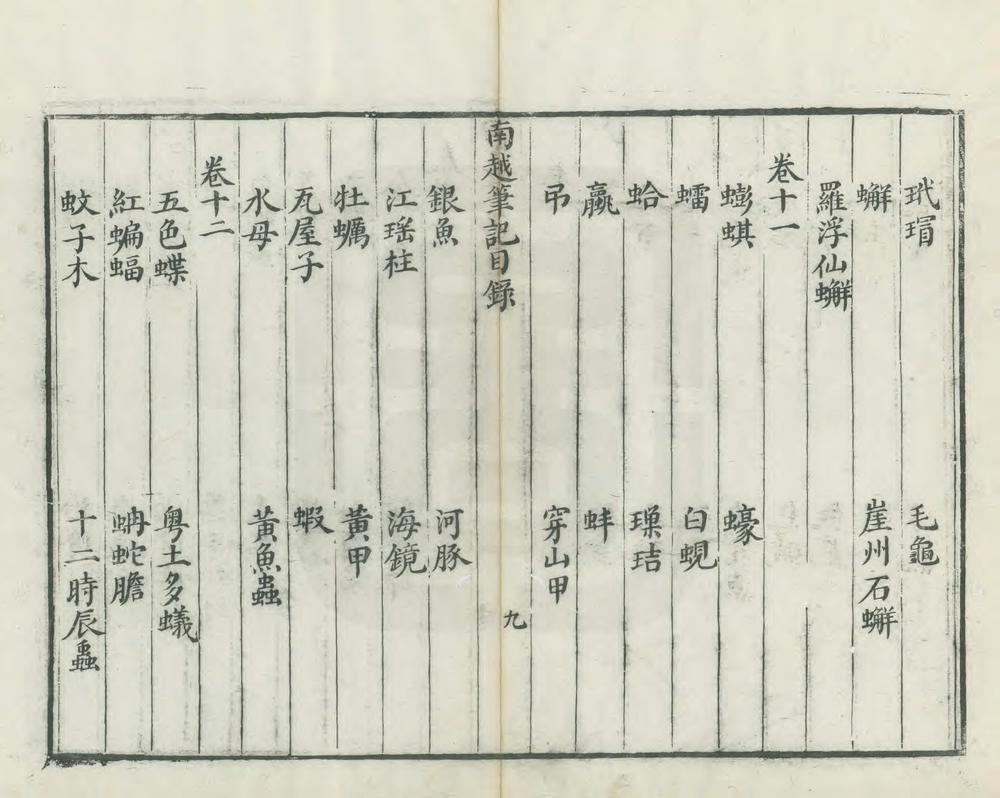 玳瑁　毛龜
蠏　崖州石蠏
羅浮仙蠏
卷十一
蟛蜞　蠔
蠕　白蜆
蛤　璅蛣
蠃　蚌
吊　穿山甲
南越筆記目錄　九
銀魚　河豚
江瑶柱　海鏡
牡蠣　黃甲
瓦屋子　蝦
水母　黃魚蟲
卷十二
五色蝶　粤土多蟻
紅蝙蝠　蚺蛇膽
蚊子木　十二時辰蟲